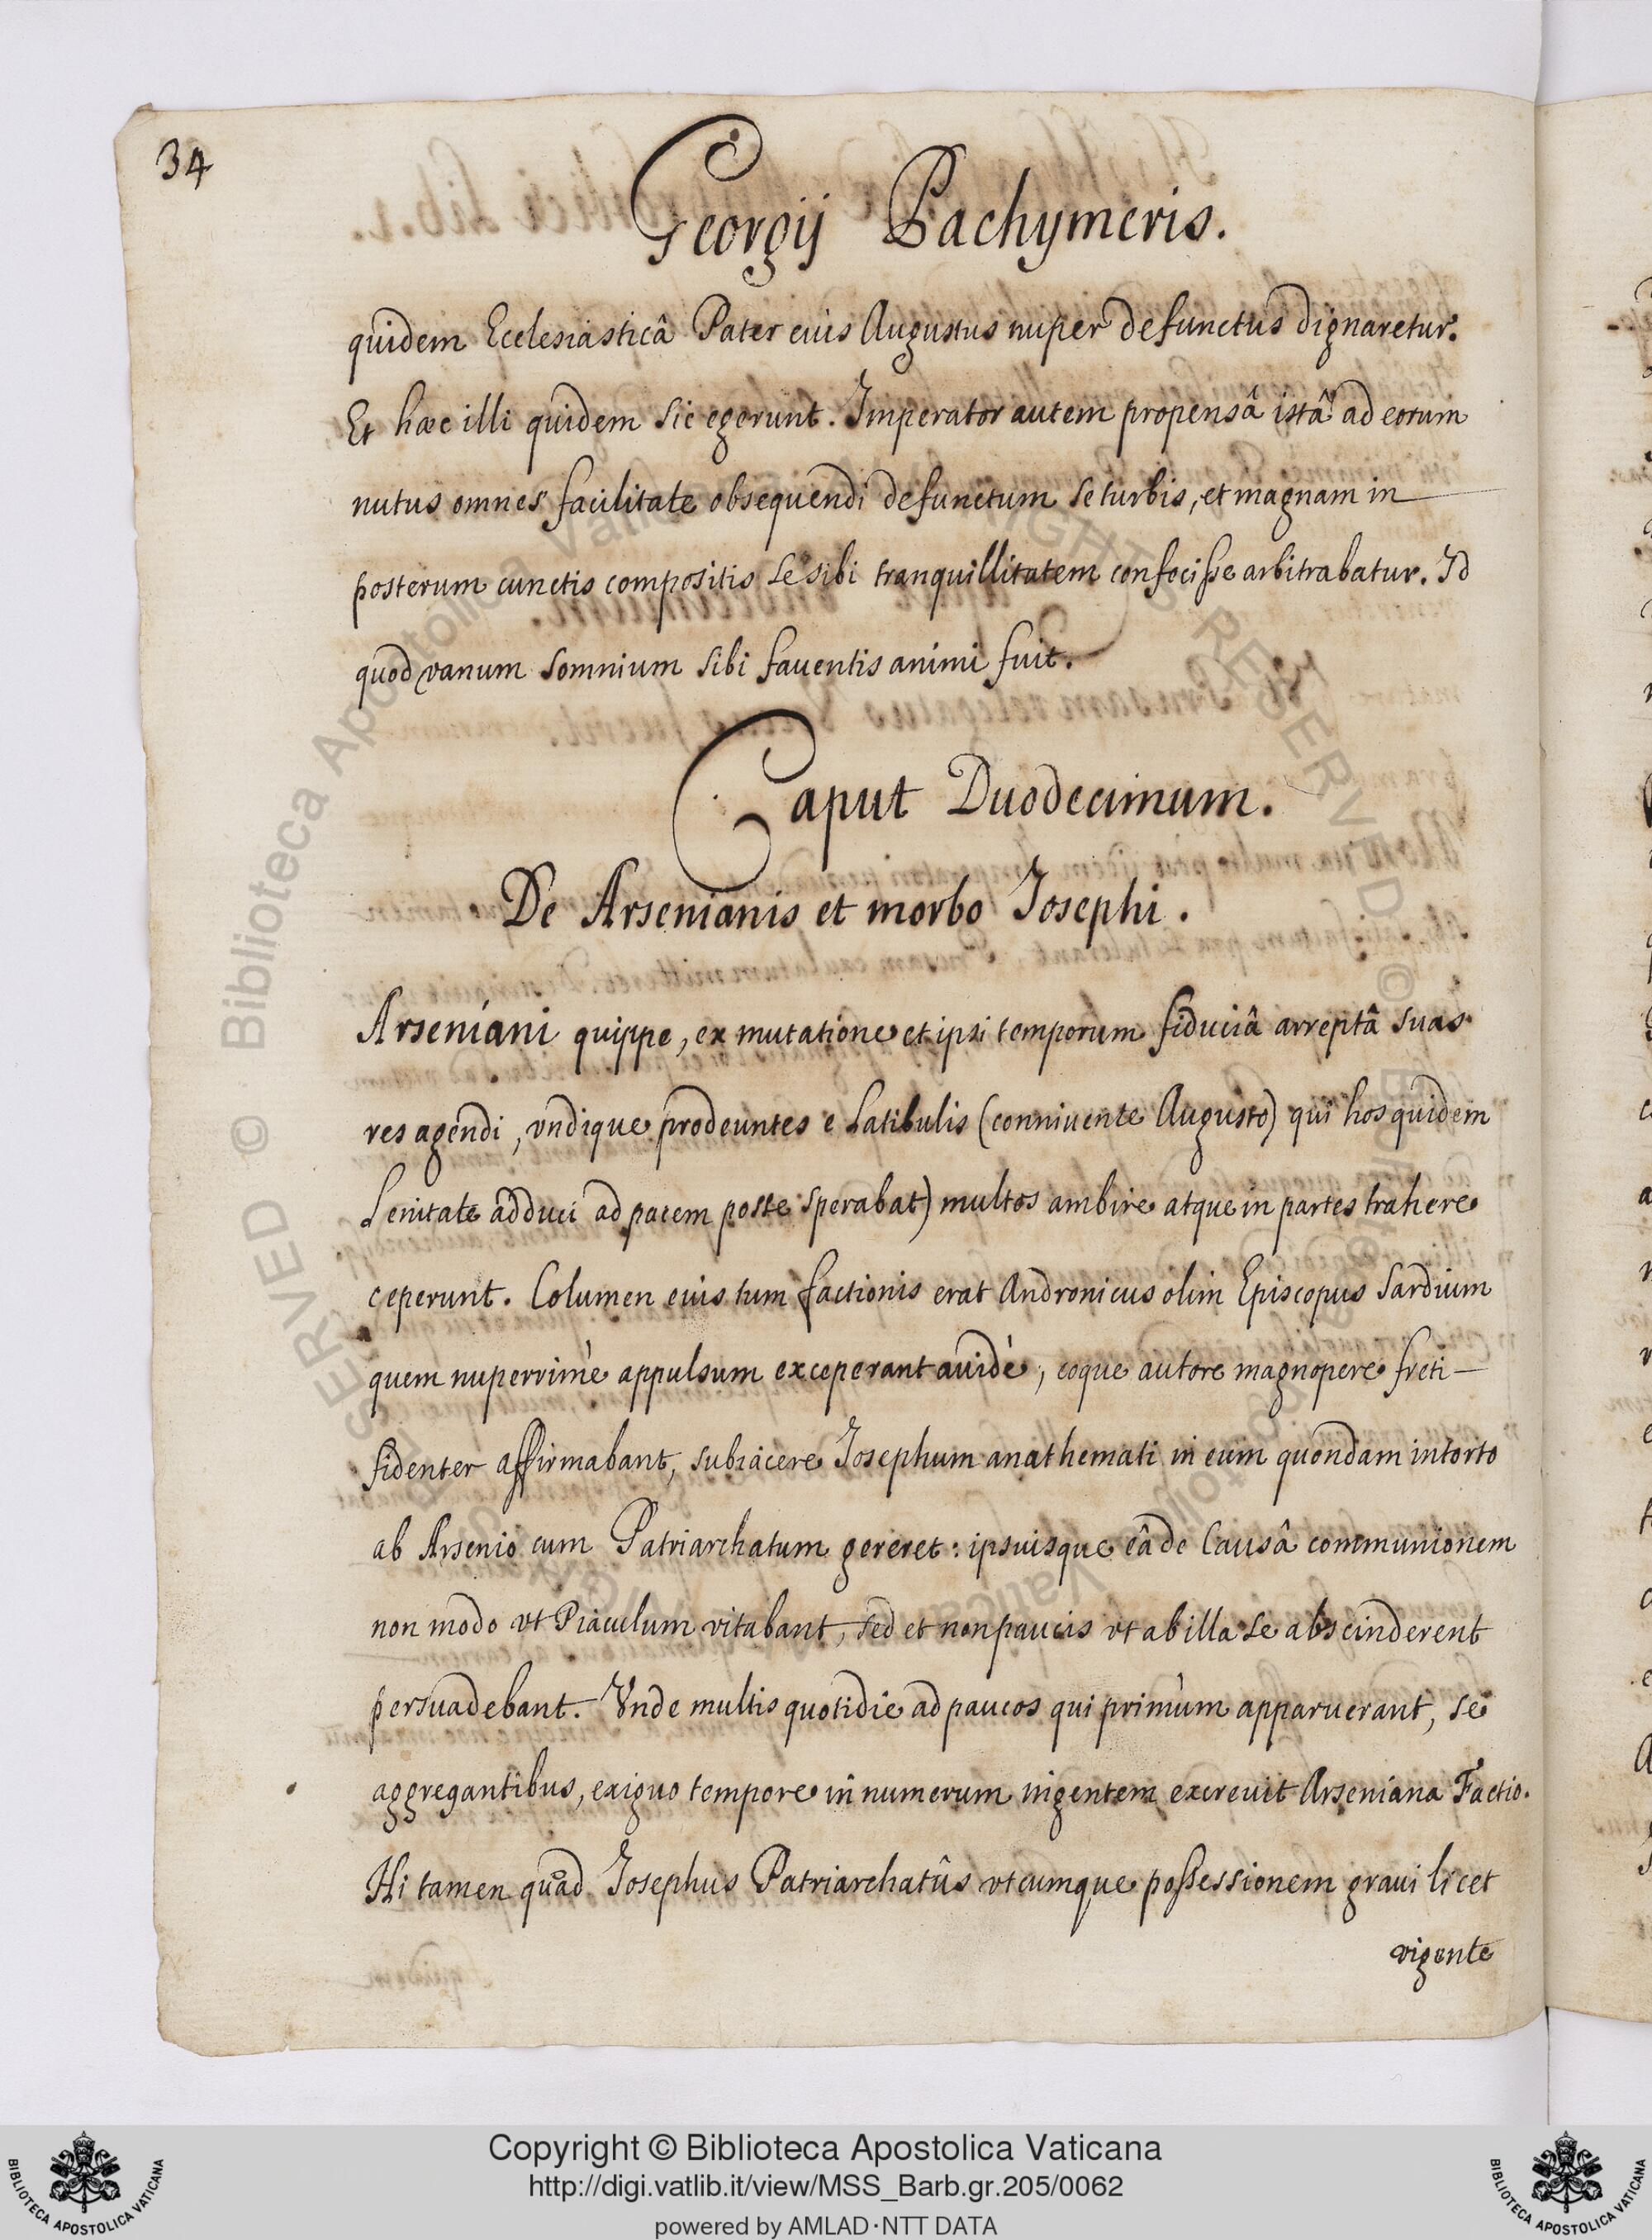 34
Georgij Pachymeris.
quidem Ecclesiasticâ Pater eius Augustus nuper defunctus dignaretur.
Et hæc illi quidem sic egerunt. Imperator autem propensâ istâ ad eorum
nutus omnes facilitate obsequendi defunctum se turbis, et magnam in
posterum cunctis compositis se sibi tranquillitatem confecisse arbitrabatur. Id
quod vanum somnium sibi fauentis animi fuit.
Caput Duodecimum.
De Arsenianis et morbo Josephi.
Arseniani quippe, ex mutatione et ipsi temporum fiduciâ arreptâ suas
res agendi, vndique prodeuntes e latibulis (conniuente Augusto) qui hos quidem
lenitate adduci ad pacem posse sperabat) multos ambire atque in partes trahere
ceperunt. Columen eius tum factionis erat Andronicus olim Episcopus Sardium
quem nuperrimè appulsum exceperant auidè, eoque autore magnopere freti
fidenter affirmabant, subiacere Josephum anathemati in eum quondam intorto
ab Arsenio cum Patriarchatum gereret: ipsuisque eâ de causâ communionem
non modo vt Piaculum vitabant, sed et non paucis vt ab illa se abscinderent
persuadebant. Vnde multis quotidie ad paucos qui primùm apparuerant, se
aggregantibus, exiguo tempore in numerum ingentem excreuit Arseniana Factio.
Hi tamen quad Josephus Patriarchatûs vtcumque possessionem graui licet
vigente
Copyright © Biblioteca Apostolica Vaticana
http://digi.vatlib.it/view/MSS_Barb.gr.205/0062
powered by AMLAD·NTT DATA
BIBLIOTECA APOSTOLICA VATICANA
BIBLIOTECA APOSTOLICA VATICANA